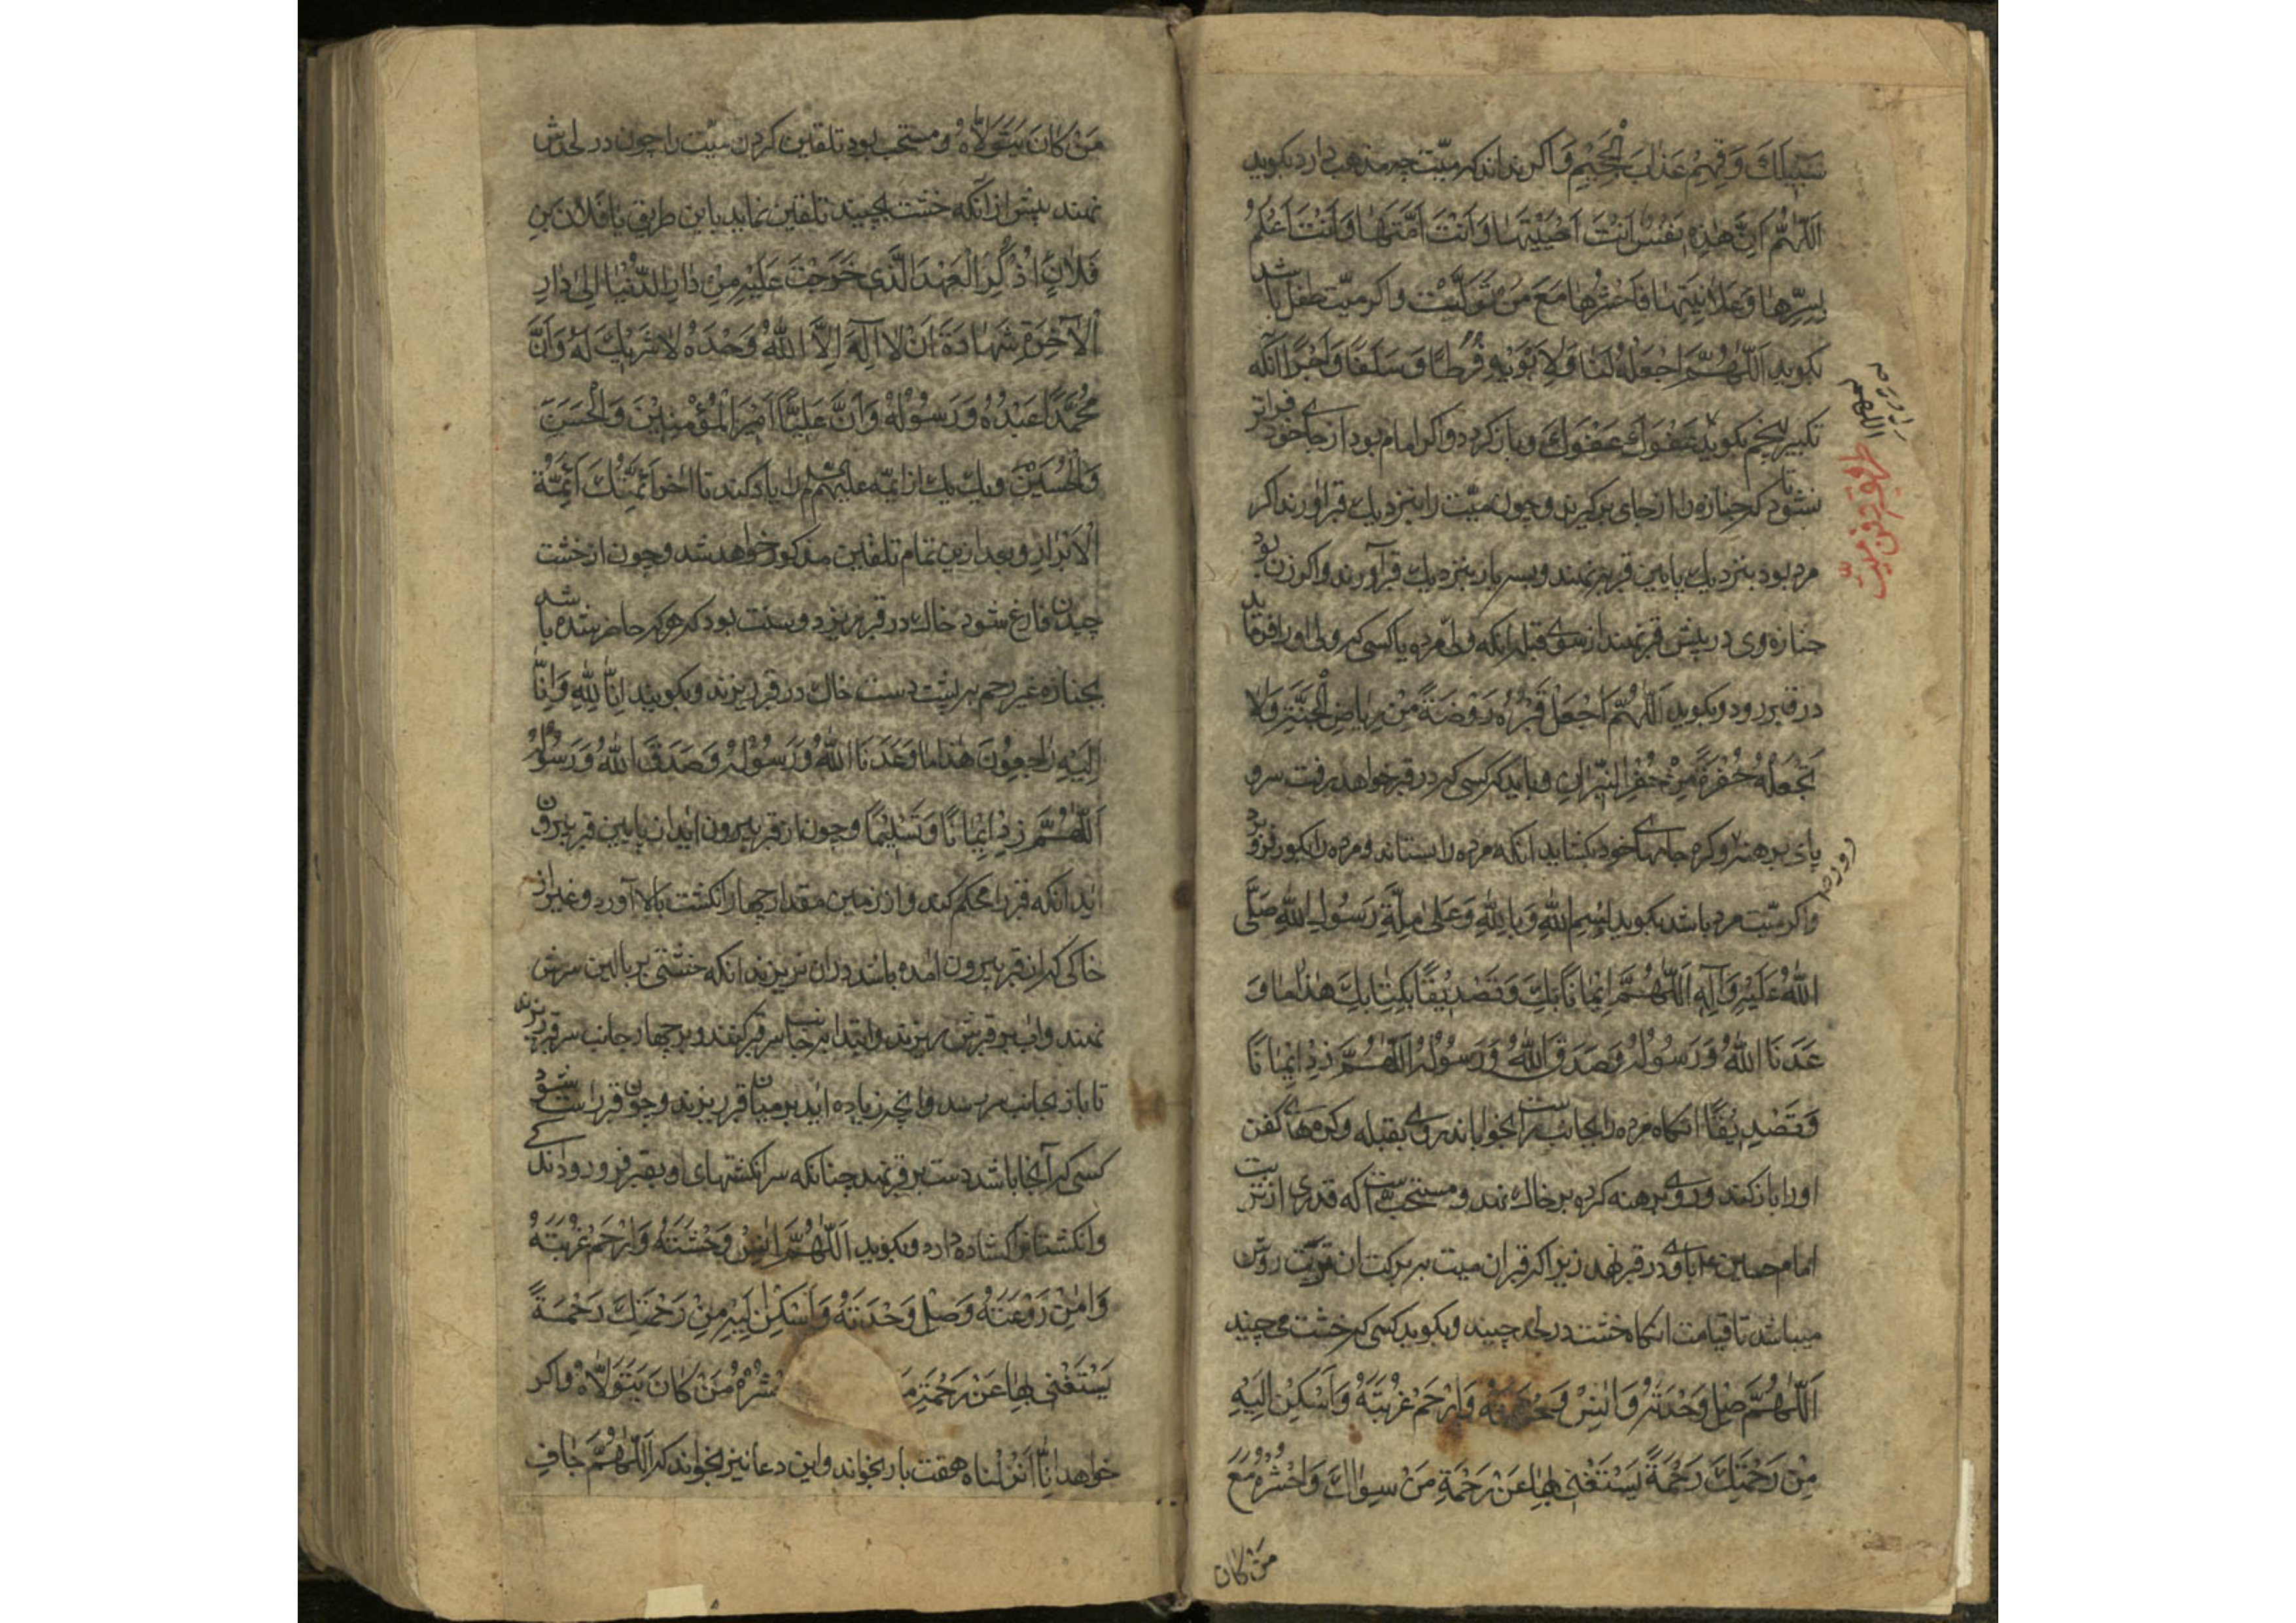 سَبِيلَكَ وَقِهِمْ عَذَابَ الْجَحِيمِ وَاكر نداند كه ميّت چه مذهب دارد بكويد
اَللّٰهُمَّ اِنَّ هٰذِهِ نَفْسٌ اَنْتَ اَحْيَيْتَهَا وَاَنْتَ اَمَتَّهَا وَاَنْتَ اَعْلَمُ
بِسِرِّهَا وَعَلَانِيَتِهَا فَاحْشُرْهَا مَعَ مَنْ تَوَلَّيْتَ واكر ميّت طفل باشد
بكويد اَللّٰهُمَّ اجْعَلْهُ لَنَا وَلِاَبَوَيْهِ فَرَطًا وَسَلَفًا وَاَجْرًا آنكه
تكبير پنجم بكويد عَفْوَكَ عَفْوَكَ وباز كردد واكر امام بود از جاى خود فراتر
نشود تا كه جنازه را از جاى بركيرند وچون ميّت را بنزديك قبر اورند اكر
مرد بود بنزديك پايين قبر بنهند وبسه بار بنزديك قبر آورند واكر زن بود
جنازه وى در پيش قبر نهند از سوى قبله انكه ولىّ مرده يا كسى كه ولى اورا فرمايد
در قبر رود وبكويد اَللّٰهُمَّ اجْعَلْ قَبْرَهُ رَوْضَةً مِنْ رِيَاضِ الْجَنَّةِ وَلَا
تَجْعَلْهُ حُفْرَةً مِنْ حُفَرِ النِّيْرَانِ وبايد كه كسى كه در قبر خواهد رفت سر و
پاى برهنه كرده جامهاى خود بكشايد انكه مرده را بستاند ومرده را بكور فرو برد
واكر ميّت مرد باشد بكويد بِسْمِ اللّٰهِ وَبِاللّٰهِ وَعَلٰى مِلَّةِ رَسُولِ اللّٰهِ صَلَّى
اللّٰهُ عَلَيْهِ وَآلِهِ اَللّٰهُمَّ اِيْمَانًا بِكَ وَتَصْدِيْقًا بِكِتَابِكَ هٰذَا مَا وَ
عَدَنَا اللّٰهُ وَرَسُوْلُهُ وَصَدَقَ اللّٰهُ وَرَسُوْلُهُ اَللّٰهُمَّ زِدْ اِيْمَانًا
وَتَصْدِيْقًا انكاه مرده را بجانب راست بخواباند روى بقبله وكرههاى كفن
اورا باز كند وروى برهنه كرده بر خاك نهد ومستحبّ است كه قدرى از تربت
امام حسين ع باوى در قبر نهد زيرا كه قبر ان ميت ببركت ان تربت روشن
ميباشد تا قيامت انكاه خشت در لحد چيند وبكويد كسى كه خشت مى چيند
اَللّٰهُمَّ صِلْ وَحْدَتَهُ وَاٰنِسْ وَحْشَتَهُ وَارْحَمْ غُرْبَتَهُ وَاَسْكِنْ اِلَيْهِ
مِنْ رَحْمَتِكَ رَحْمَةً يَسْتَغْنِى بِهَا عَنْ رَحْمَةِ مَنْ سِوَاكَ وَاحْشُرْهُ مَعَ
مَنْ كَانَ
دفن ميّت
مَنْ كَانَ يَتَوَلَّاهُ ومستحب بود تلقين كردن ميّت را چون در لحدش
نهند پيش از انكه خشت بچينند تلقين نمايد باين طريق يا فَلَانَ بْنِ
فَلَانٍ اُذْكُرِ الْعَهْدَ الَّذِى خَرَجْتَ عَلَيْهِ مِنْ دَارِ الدُّنْيَا اِلٰى دَارِ
الْاٰخِرَةِ شَهَادَةَ اَنْ لَا اِلٰهَ اِلَّا اللّٰهُ وَحْدَهُ لَا شَرِيْكَ لَهُ وَاَنَّ
مُحَمَّدًا عَبْدُهُ وَرَسُوْلُهُ وَاَنَّ عَلِيًّا اَمِيْرَ الْمُؤْمِنِيْنَ وَالْحَسَنَ
وَالْحُسَيْنَ ويك يك از ائمّه عليهم را ياد كند تا اخر اَئِمَّتُكَ اَئِمَّةُ
الْاَبْرَارِ وبعد ازين تمام تلقين مذكور خواهد شد وچون از خشت
چيدن فارغ شود خاك در قبر ريزد وسنت بود كه هر كه حاضر شده باشد
بجنازه غير رحم بپشت دست خاك در قبر ريزند وبكويند اِنَّا لِلّٰهِ وَاِنَّا
اِلَيْهِ رَاجِعُوْنَ هٰذَا مَا وَعَدَنَا اللّٰهُ وَرَسُوْلُهُ وَصَدَقَ اللّٰهُ وَرَسُوْلُهُ
اَللّٰهُمَّ زِدْ اِيْمَانًا وَتَسْلِيْمًا وچون از قبر بيرون ايد از پايين قبر بيرون
ايد انكه قبر را محكم كند واز زمين مقدار چهار انكشت بالا آورد وغير از
خاكى كه از قبر بيرون امده باشد دران نريزند انكه خشتى بر بالين سرش
نهند واب بر قبرش ريزند وابتدا بر جانب سر قبر كنند وبر چهار جانب سر قبر ريزند
تا باز بجانب سر رسد وانچه زياده ايد بر ميان قبر ريزند وچون قبر راست شود
كسى كه آنجا باشد دست بر قبر نهد چنانكه سر انكشتهاى او بقبر فرو رود اندكى
وانكشتانرا كشاده دارد وبكويد اَللّٰهُمَّ اٰنِسْ وَحْشَتَهُ وَارْحَمْ غُرْبَتَهُ
وَاٰمِنْ رَوْعَتَهُ وَصِلْ وَحْدَتَهُ وَاَسْكِنْ اِلَيْهِ مِنْ رَحْمَتِكَ رَحْمَةً
يَسْتَغْنِى بِهَا عَنْ رَحْمَةِ مَنْ كَانَ يَتَوَلَّاهُ واكر
خواهد اِنَّا اَنْزَلْنَاهُ هفت بار بخواند واين دعا نيز بخواند كه اَللّٰهُمَّ جَافِ